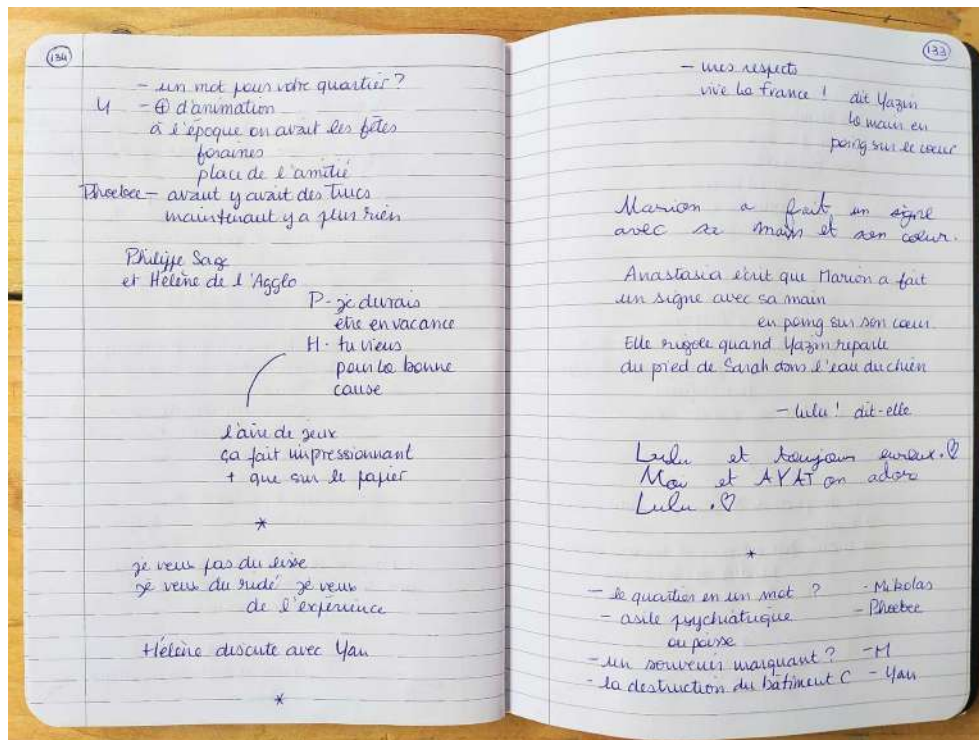 134
- un mot pour votre quartier ?
Y - ⊕ d'animation
à l'époque on avait les fêtes
foraines
place de l'amitié
Phoebee - avant y avait des trucs
maintenant y a plus rien
Philippe Sage
et Hélène de l'Agglo
P - je durais
être en vacance
H - tu viens
pour la bonne
cause
l'aire de jeux
ça fait impressionnant
+ que sur le papier
*
je veux pas du lisse
je veux du rude je veux
de l'expérience
Hélène discute avec Yan
*
133
- mes respects
vive la france ! dit Yazin
la main en
poing sur le cœur
Marion a fait un signe
avec sa main et son cœur.
Anastasia écrit que Marion a fait
un signe avec sa main
en poing sur son cœur.
Elle rigole quand Yazin reparle
du pied de Sarah dans l'eau du chien
- lulu ! dit-elle
Lulu et toujour eureux.♡
Moi et AYAT on ador
Lulu .♡
*
- le quartier en un mot ? - Mikolas
- asile psychiatrique - Phoebee
ou poisse
- un souvenir marquant ? - M
- la destruction du bâtiment C - Yan